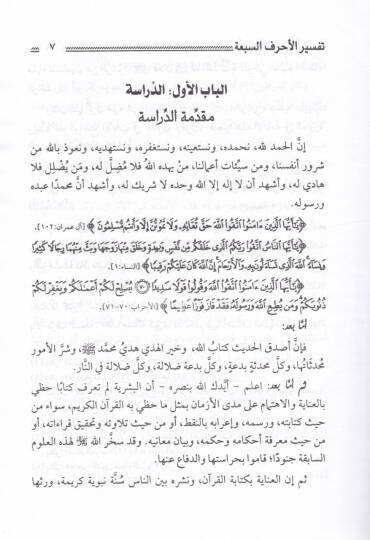 تفسير الأحرف السبعة ٧
الباب الأول: الدّراسة
مقدّمة الدِّراسة
إنَّ الحمد لله، نحمده، ونستعينه، ونستغفره، ونستهديه، ونعوذ بالله من
شرور أنفسنا، ومن سيِّئات أعمالنا، منْ يهده اللهُ فلا مُضِلَّ له، ومَن يُضْلِل فلا
هادي له، وأشهد أن لا إله إلا الله وحده لا شريك له، وأشهد أنَّ محمدًا عبده
ورسوله.
﴿يَٰٓأَيُّهَا ٱلَّذِينَ ءَامَنُوا۟ ٱتَّقُوا۟ ٱللَّهَ حَقَّ تُقَاتِهِۦ وَلَا تَمُوتُنَّ إِلَّا وَأَنتُم مُّسْلِمُونَ﴾ [آل عمران: ١٠٢].
﴿يَٰٓأَيُّهَا ٱلنَّاسُ ٱتَّقُوا۟ رَبَّكُمُ ٱلَّذِى خَلَقَكُم مِّن نَّفْسٍ وَٰحِدَةٍ وَخَلَقَ مِنْهَا زَوْجَهَا وَبَثَّ مِنْهُمَا رِجَالًا كَثِيرًا
وَنِسَآءً وَٱتَّقُوا۟ ٱللَّهَ ٱلَّذِى تَسَآءَلُونَ بِهِۦ وَٱلْأَرْحَامَ إِنَّ ٱللَّهَ كَانَ عَلَيْكُمْ رَقِيبًا﴾ [النساء: ١].
﴿يَٰٓأَيُّهَا ٱلَّذِينَ ءَامَنُوا۟ ٱتَّقُوا۟ ٱللَّهَ وَقُولُوا۟ قَوْلًا سَدِيدًا ۝ يُصْلِحْ لَكُمْ أَعْمَٰلَكُمْ وَيَغْفِرْ لَكُمْ
ذُنُوبَكُمْ وَمَن يُطِعِ ٱللَّهَ وَرَسُولَهُۥ فَقَدْ فَازَ فَوْزًا عَظِيمًا﴾ [الأحزاب: ٧٠-٧١].
أمَّا بعد:
فإنَّ أصدق الحديث كتابُ الله، وخير الهدي هديُ محمَّد ﷺ، وشرَّ الأمور
مُحدثاتُها، وكلَّ محدثةٍ بدعةٍ، وكلَّ بدعة ضلالة، وكلَّ ضلالة في النَّار.
ثم أمَّا بعد: اعلم - أيَّدك الله بنصره - أن البشرية لم تعرف كتابًا حظي
بالعناية والاهتمام على مدى الأزمان بمثل ما حظي به القرآن الكريم، سواء من
حيث كتابته، ورسمه، وإعرابه بالنقط، أو من حيث تلاوته وتحقيق قراءاته، أو
من حيث معرفة أحكامه وحكمه، وبيان معانيه. وقد سخَّر الله لهذه العلوم
السابقة جنودًا؛ قاموا بحراستها والدفاع عنها.
ثم إن العناية بكتابة القرآن، ونشره بين الناس سُنَّة نبوية كريمة، ورثها